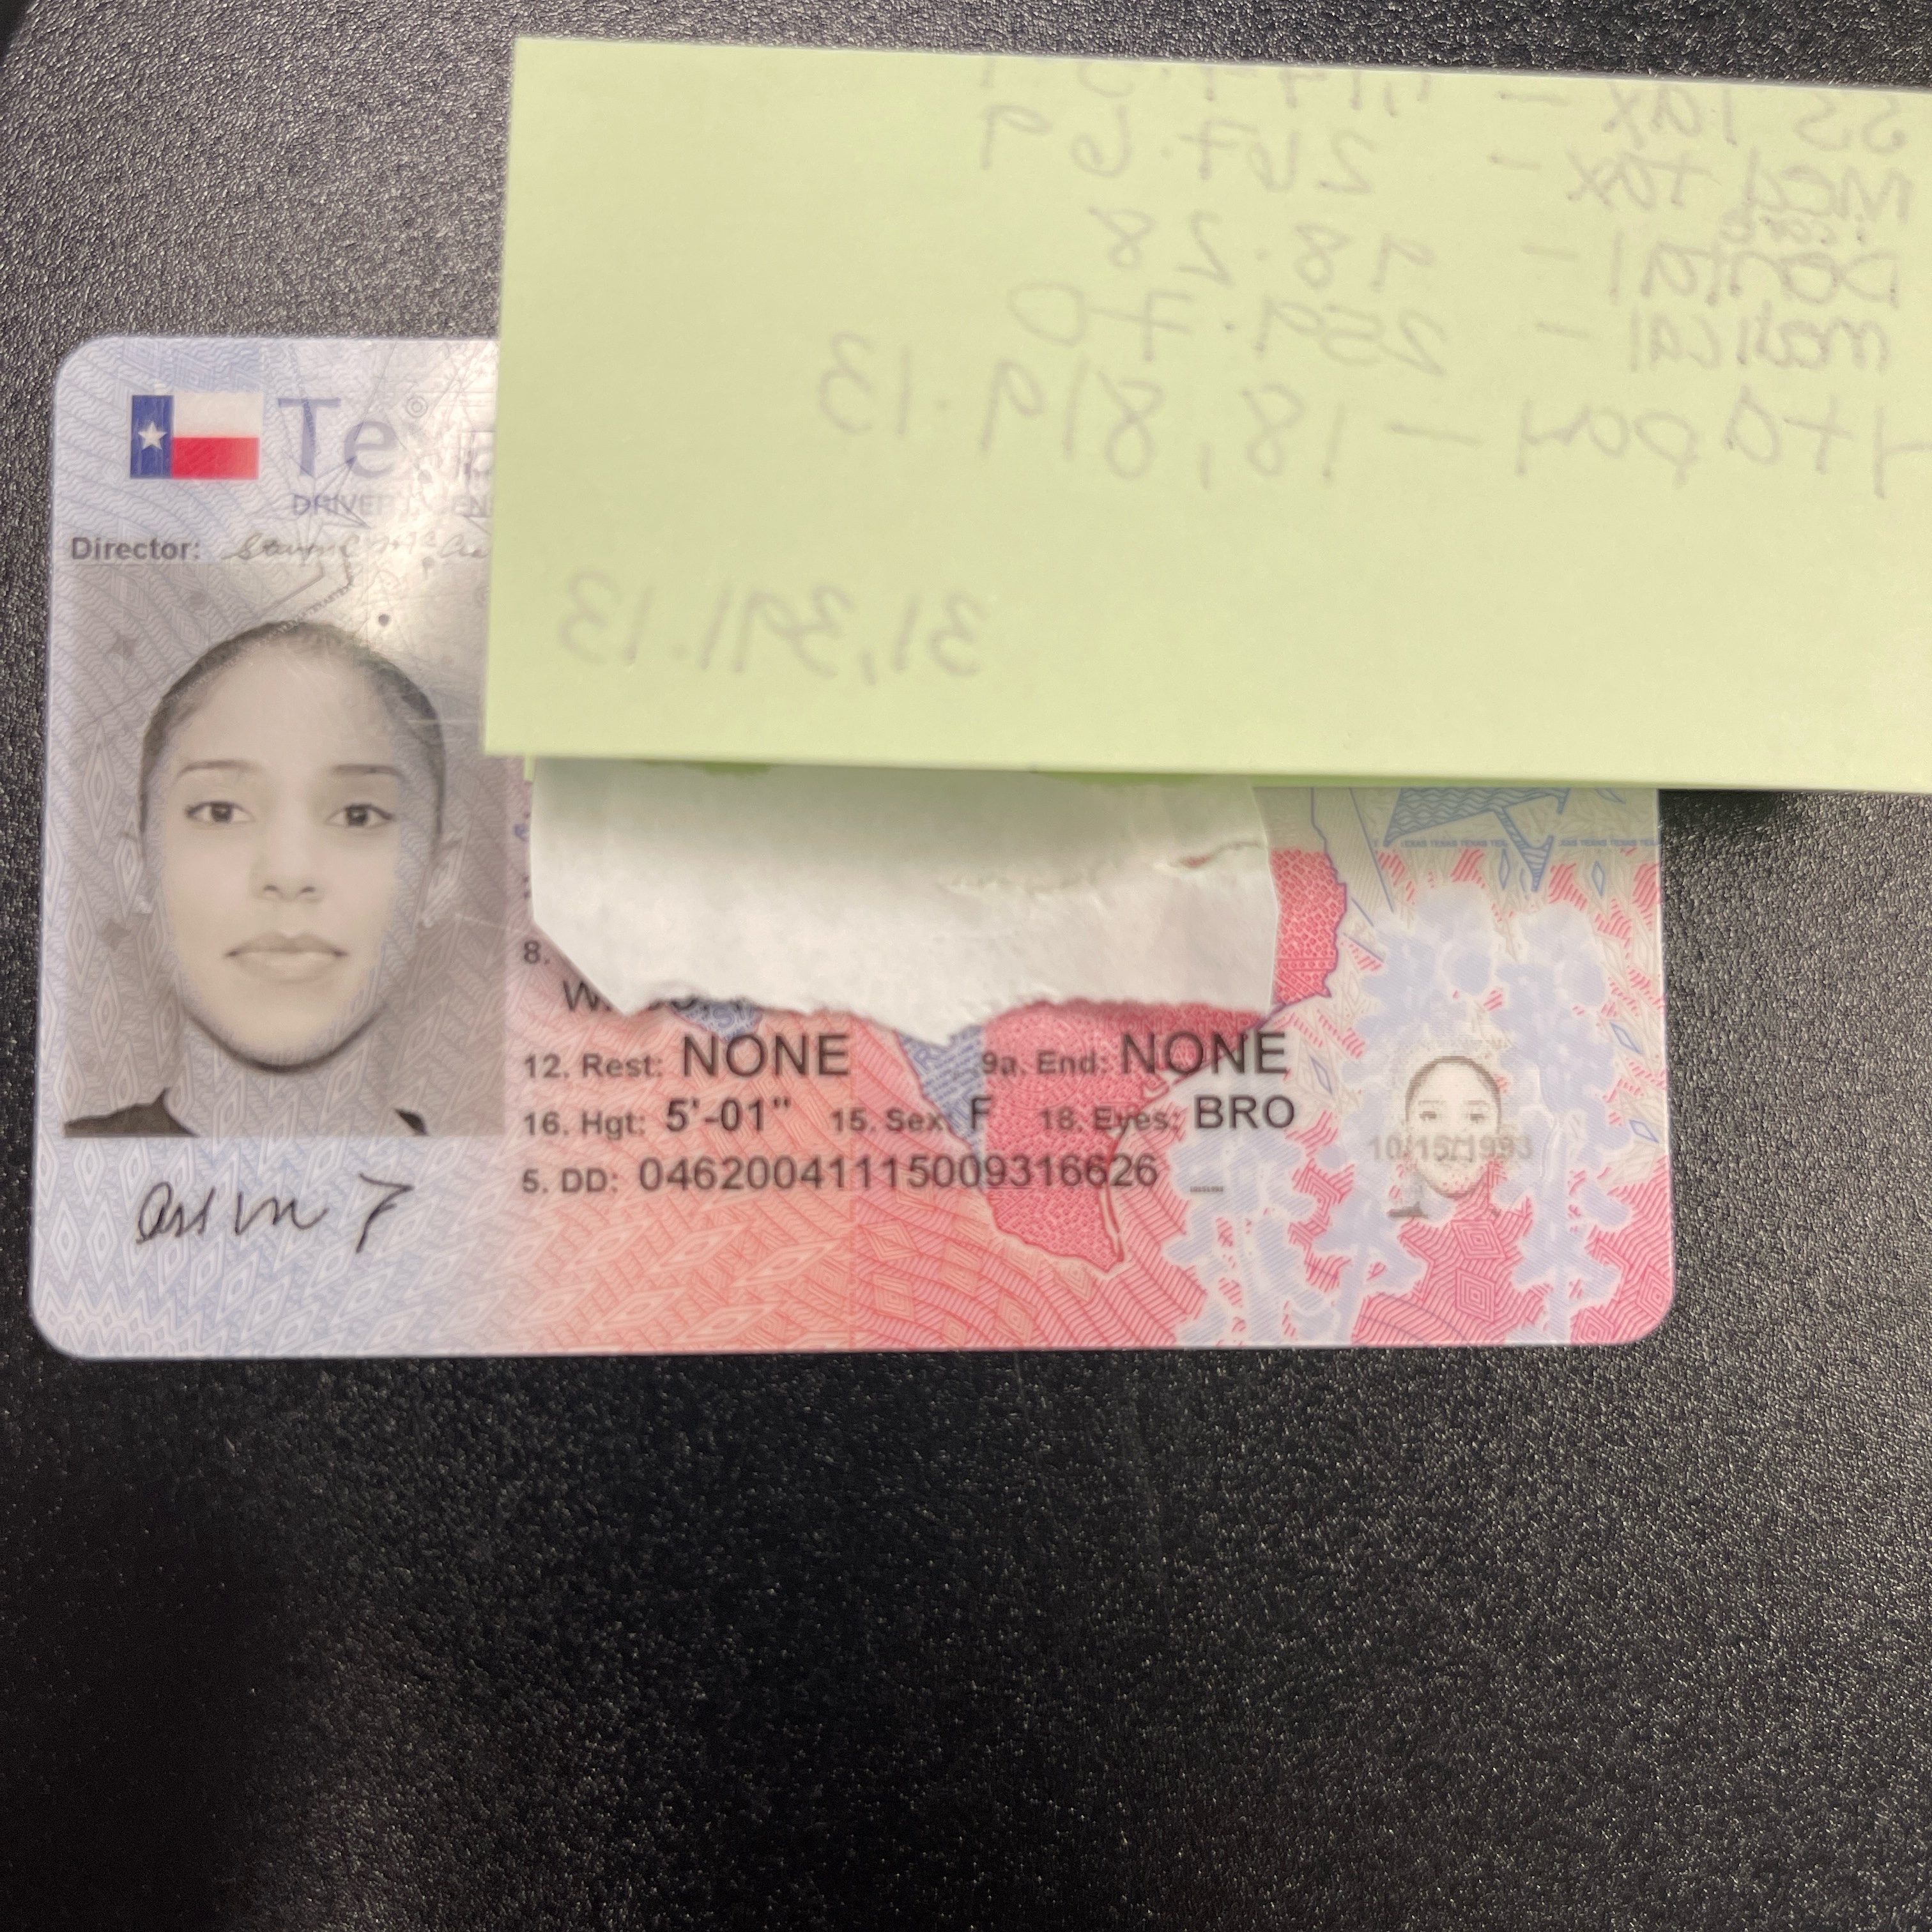 SS Tax -
Med tax - 267.69
Dental - 98.28
medical - 259.70
pay - 18,819.13
31,391.13
Te
DRIVER
Director:
8.
12. Rest: NONE 9a. End: NONE
16. Hgt: 5'-01" 15. Sex: F 18. Eyes: BRO
10/15/1993
5. DD: 04620041115009316626